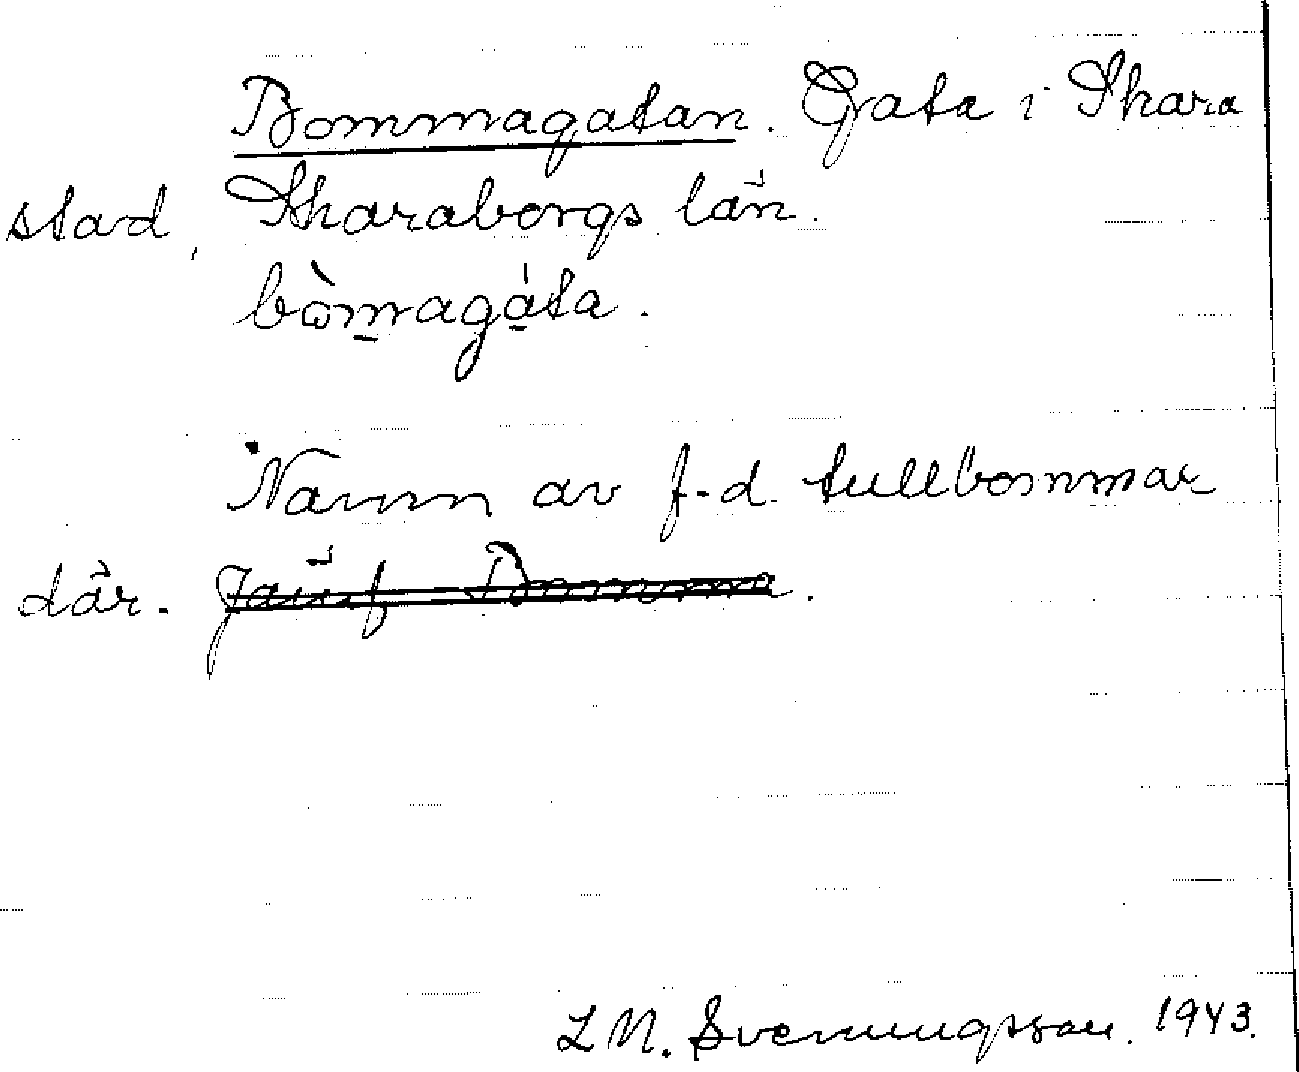 Bommagatan. Gata i Skara
stad, Skaraborgs län.
bòm̲agá̲ta.
Namn av f.d. tullbommar
där. Jämf Bomma.
L N. Svenungsson. 1943.